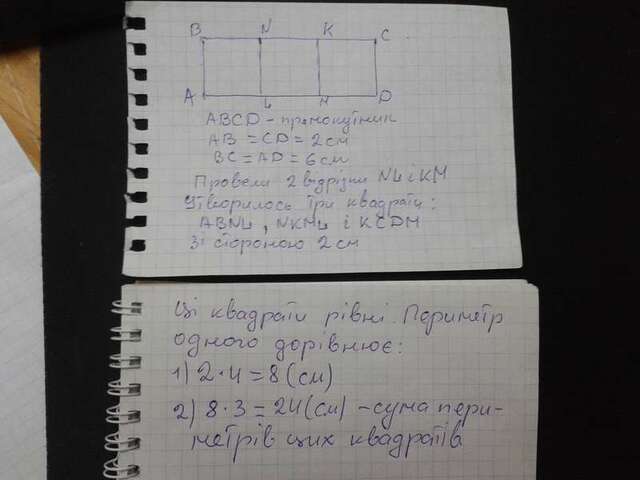 B N K C
A L M D
ABCD - прямокутник
AB = CD = 2 см
BC = AD = 6 см
Провели 2 відрізки NL і KM
Утворилось три квадрати:
ABNL, NKML і KCDM
Зі стороною 2 см
Ці квадрати рівні. Периметр
одного дорівнює:
1) 2 · 4 = 8 (см)
2) 8 · 3 = 24 (см) - сума пери-
метрів цих квадратів